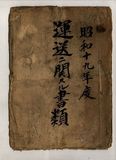 昭和十九年度
運送ニ関スル書類